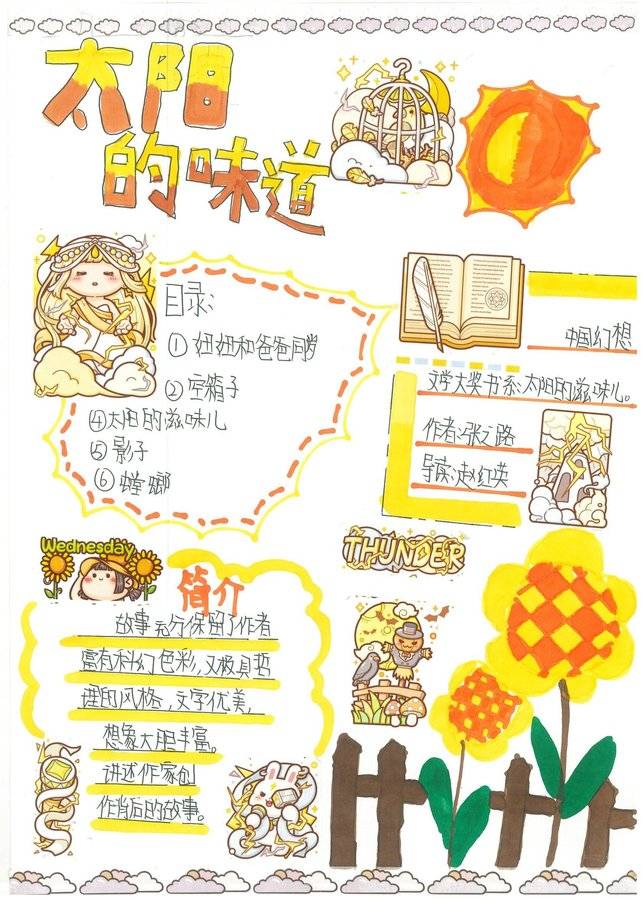 太阳
的味道
目录:
① 妞妞和爸爸同岁
② 空箱子
④太阳的滋味儿
⑤ 影子
⑥ 螳螂
中国幻想
文学大奖书系:太阳的滋味儿。
作者:张之路
导读:赵红英
THUNDER
Wednesday
简介
故事充分保留了作者
富有科幻色彩,又极具哲
理的风格,文字优美,
想象大胆丰富。
讲述作家创
作背后的故事。